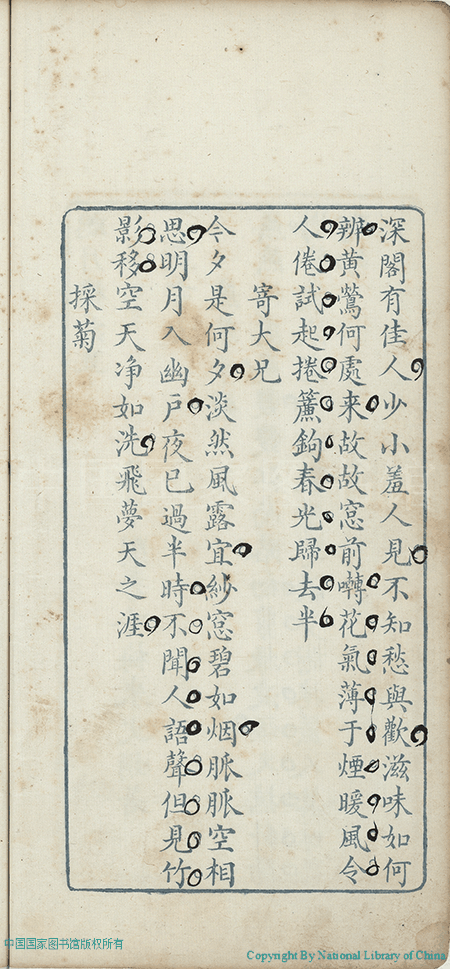 深閣有佳人少小羞人見不知愁與歡滋味如何
辨黃鶯何處来故故窓前囀花氣薄于煙暖風令
人倦試起捲簾鉤春光歸去半
寄大兄
今夕是何夕淡然風露宜紗窓碧如烟脈脈空相
思明月入幽戶夜已過半時不聞人語聲但見竹
影移空天净如洗飛夢天之涯
採菊
中国国家图书馆版权所有
Copyright By National Library of China